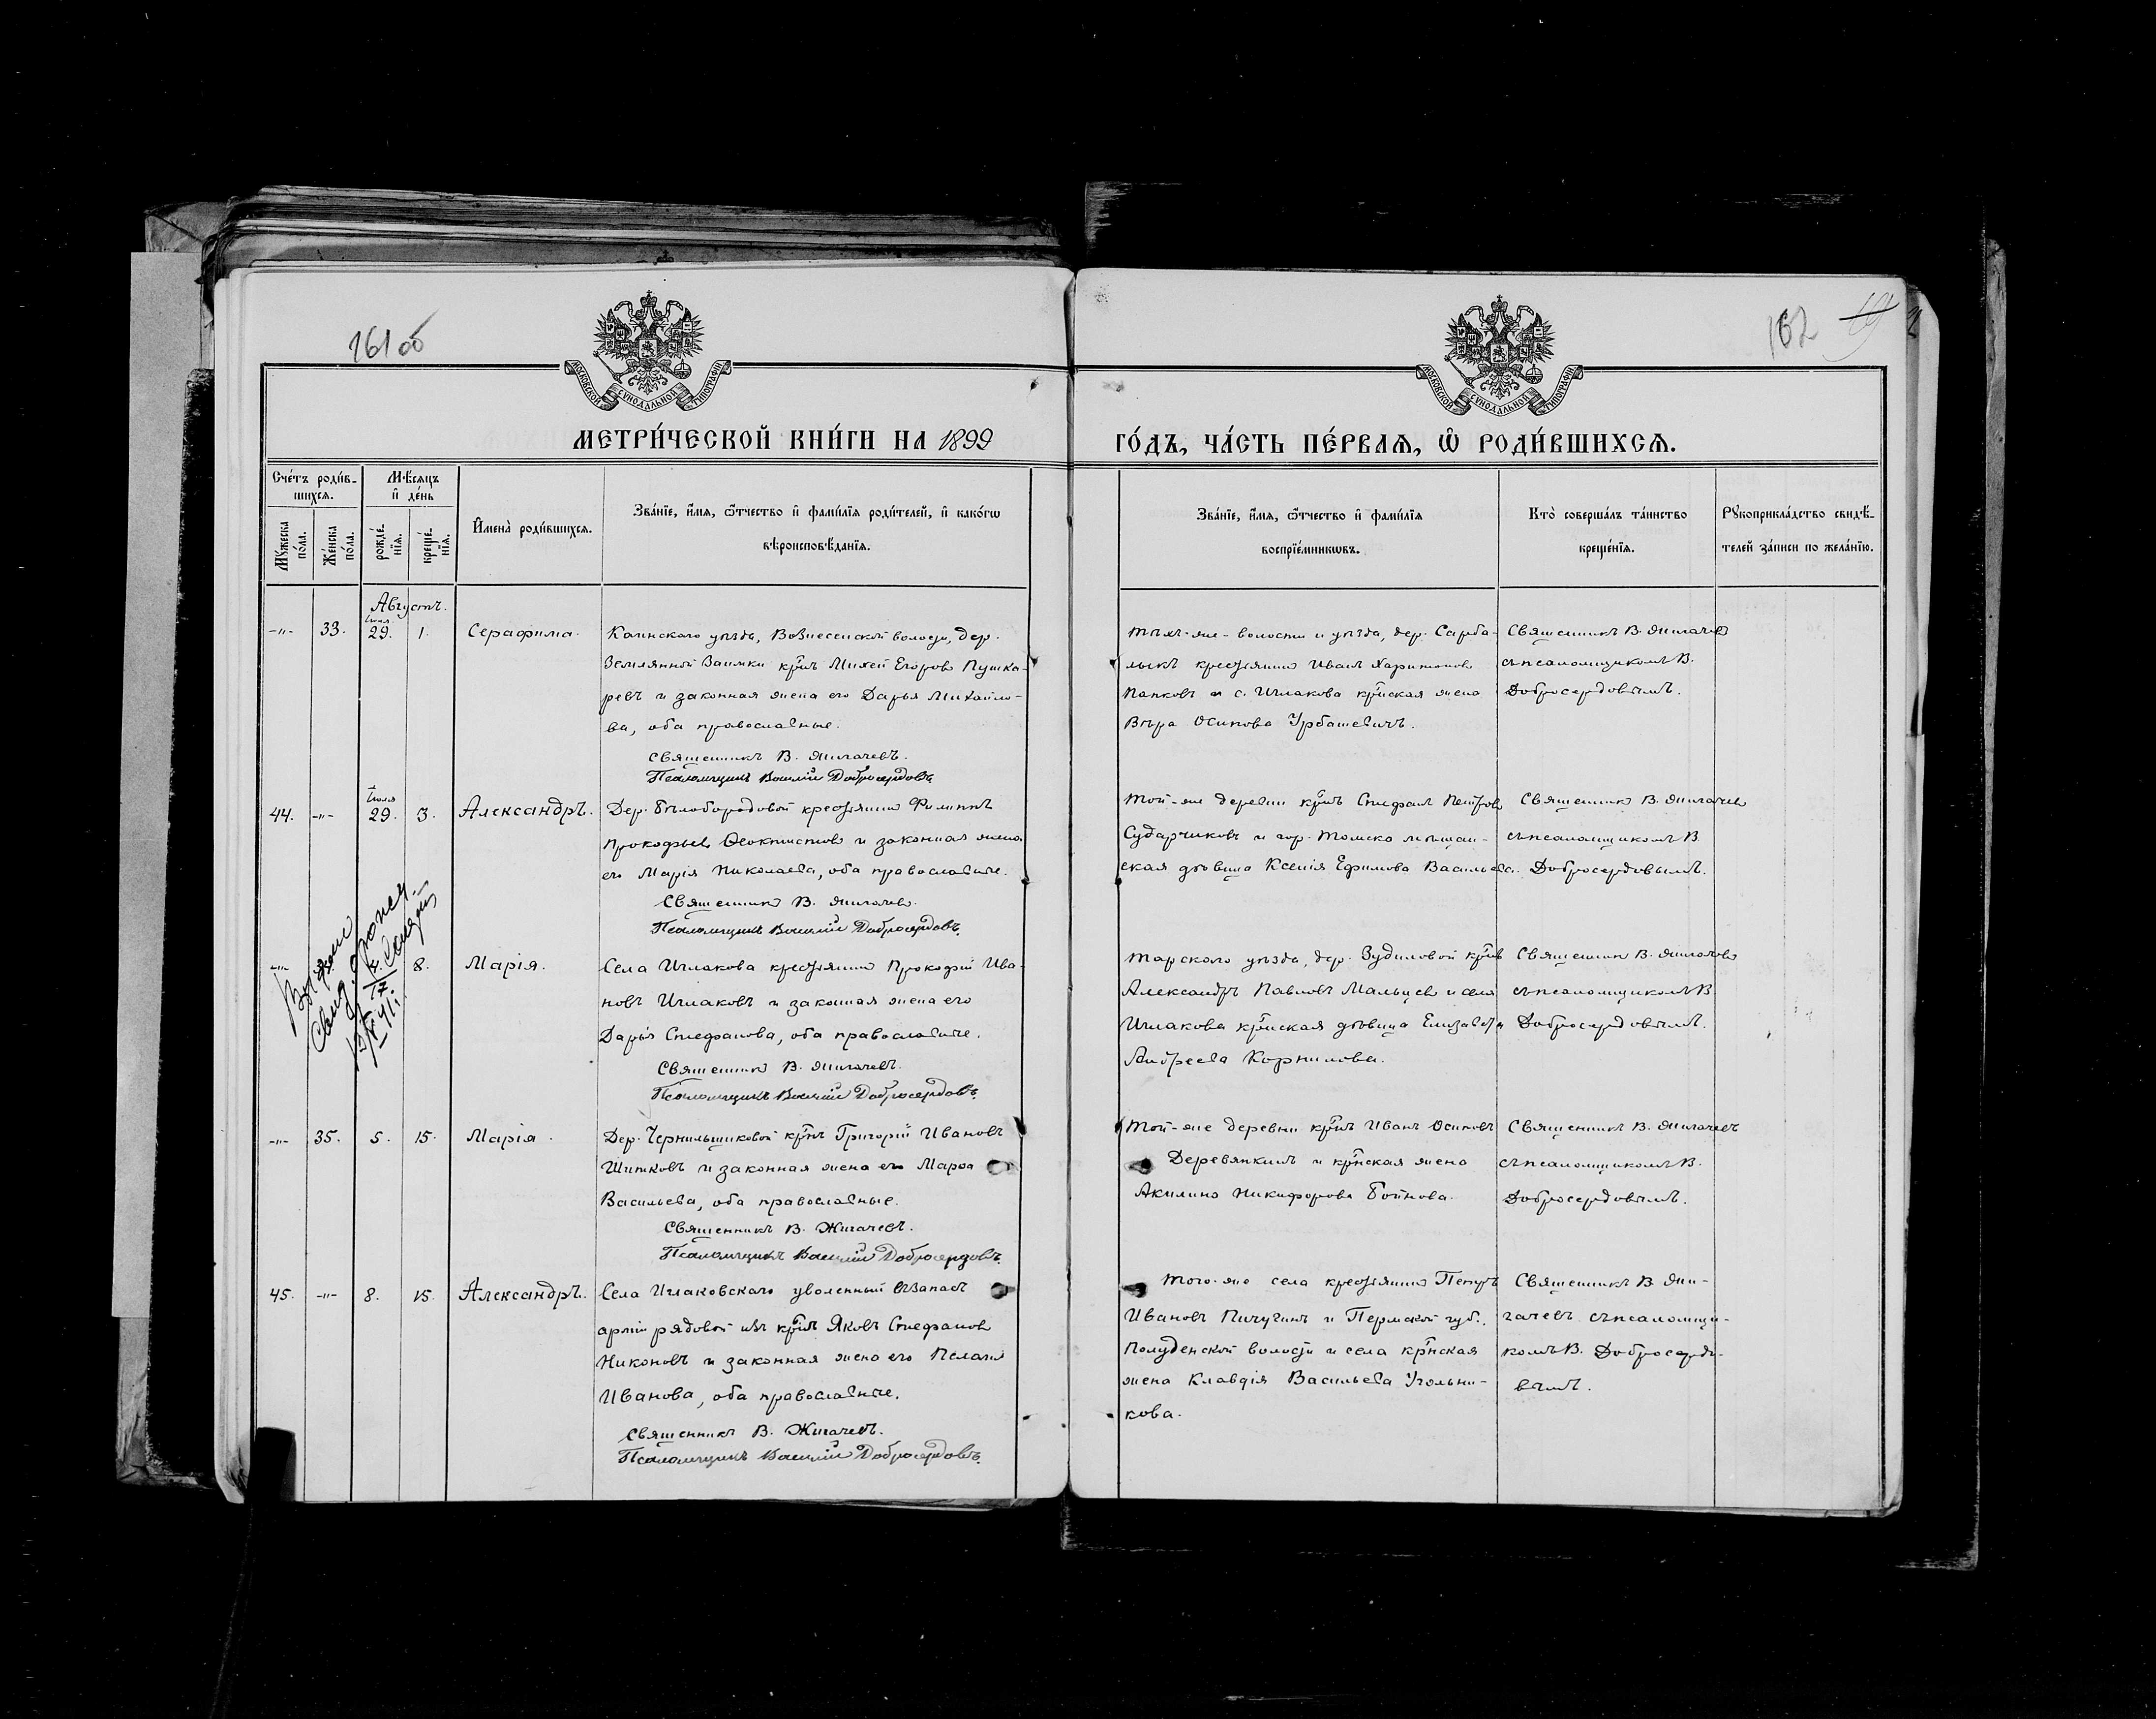 161 об
162
19
МОСКОВСКОЙ СѴНОДАЛЬНОЙ ТИПОГРАФІИ
МОСКОВСКОЙ СѴНОДАЛЬНОЙ ТИПОГРАФІИ
МЕТРИ́ЧЕСКОЙ КНИ́ГИ НА 1899
ГО́ДЪ, ЧА́СТЬ ПЕ́РВАѦ, Ѡ҆ РОДИ́ВШИХСѦ.
Сче́тъ роди́в-
шихсѧ.
Мꙋ́жеска по́ла.
Же́нска по́ла.
Мѣ́сѧцъ
и҆ де́нь
рожде́-
нїѧ.
креще́-
нїѧ.
И҆мена̀ роди́вшихсѧ.
Зва́нїе, и҆́мѧ, ѻ҆́тчество и҆ фами́лїѧ роди́телей, и҆ како́гѡ
вѣроисповѣ́данїѧ.
Зва́нїе, и҆́мѧ, ѻ҆́тчество и҆ фами́лїѧ
воспрїе́мникѡвъ.
Кто̀ соверша́лъ та́инство
креще́нїѧ.
Рꙋкоприкла́дство свидѣ́-
телей за́писи по жела́нїю.
Августъ.
-"- 33. Іюля 29. 1. Серафима.
Каинскаго уѣзда, Вознесенской волости, дер.
Землянной Заимки крнъ Михей Егоровъ Пушка-
ревъ и законная жена его Дарья Михайло-
ва, оба православные.
Священникъ В. Жигачевъ.
Псаломщикъ Василій Добросердовъ.
Тѣхъ-же-волости и уѣзда, дер. Сарба-
лыкъ крестьянинъ Иванъ Харитоновъ
Папковъ и с. Иглакова крнская жена
Вѣра Осипова Урбашевичъ.
Священникъ В. Жигачевъ
съ псаломщикомъ В.
Добросердовымъ.
44. -"- Іюля 29. 3. Александръ.
Дер. Бѣлобородовой крестьянинъ Филиппъ
Прокофьевъ Ѳеоктистовъ и законная жена
его Марія Николаева, оба православные.
Священникъ В. Жигачевъ.
Псаломщикъ Василій Добросердовъ.
Той-же деревни крнъ Стефанъ Петровъ
Сударчиковъ и гор. Томска мѣщан-
ская дѣвица Ксенія Ефимова Васильева.
Священникъ В. Жигачевъ
съ псаломщикомъ В.
Добросердовымъ.
-"- 8. Марія.
Села Иглакова крестьянинъ Прокофій Ива-
новъ Иглаковъ и законная жена его
Дарья Стефанова, оба православные.
Священникъ В. Жигачевъ.
Псаломщикъ Василій Добросердовъ.
Тарскаго уѣзда, дер. Зудиловой крнъ
Александръ Павловъ Мальцевъ и села
Иглакова крнская дѣвица Елизавета
Андреева Корнилова.
Священникъ В. Жигачевъ
съ псаломщикомъ В.
Добросердовымъ.
-"- 35. 5. 15. Марія.
Дер. Чернильщиковой крнъ Григорій Ивановъ
Шитковъ и законная жена его Марѳа
Васильева, оба православные.
Священникъ В. Жигачевъ.
Псаломщикъ Василій Добросердовъ.
Той-же деревни крнъ Иванъ Осиповъ
Деревянкинъ и крнская жена
Акилина Никифорова Бойнова.
Священникъ В. Жигачевъ
съ псаломщикомъ В.
Добросердовымъ.
45. -"- 8. 15. Александръ.
Села Иглаковскаго уволенный въ запасъ
арміи рядовой изъ крнъ Яковъ Стефановъ
Никоновъ и законная жена его Пелагія
Иванова, оба православные.
Священникъ В. Жигачевъ.
Псаломщикъ Василій Добросердовъ.
Того-же села крестьянинъ Петръ
Ивановъ Пичугинъ и Пермской губ.
Полуденской волости и села крнская
жена Клавдія Васильева Угольни-
кова.
Священникъ В. Жи-
гачевъ съ псаломщи-
комъ В. Добросердо-
вымъ.